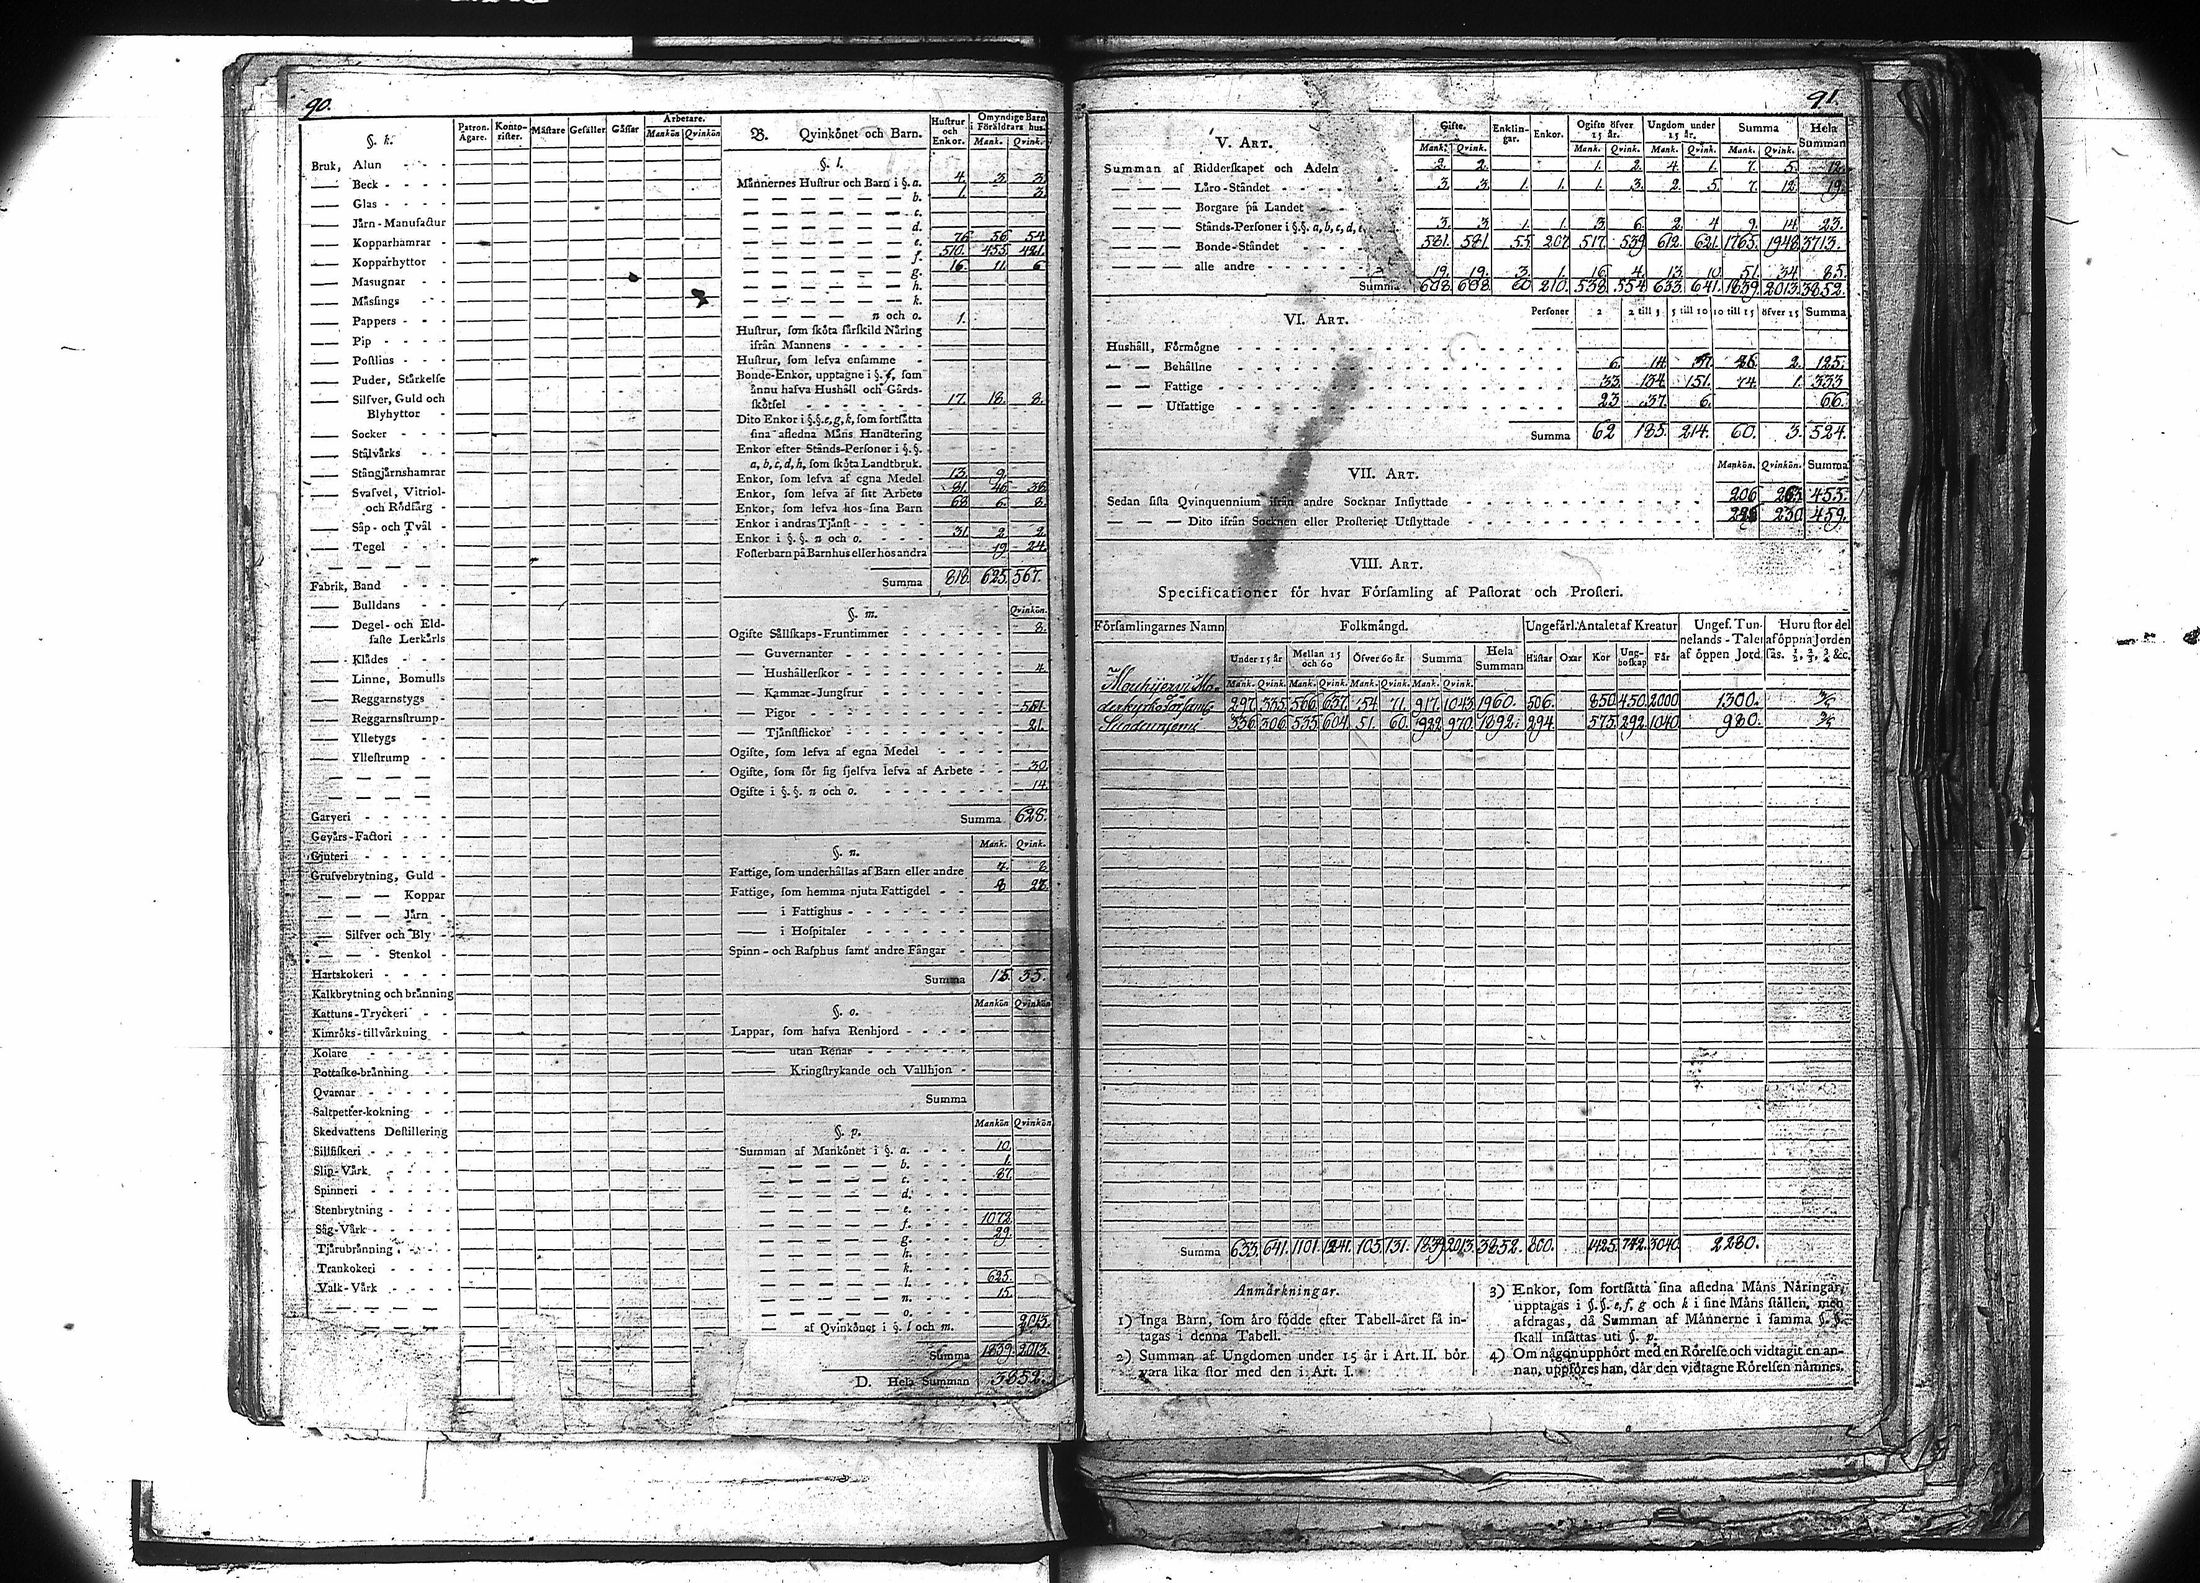 90.
§. k. Patron. Ägare. Konto-rister. Mästare Gesäller Gässar Arbetare. Mankön Qvinkön
Bruk, Alun
— Beck
— Glas
— Järn-Manufactur
— Kopparhamrar
— Kopparhyttor
— Masugnar
— Mäsſings
— Pappers
— Pip
— Poſtlins
— Puder, Stärkelſe
— Silfver, Guld och
Blyhyttor
— Socker
— Stålvärks
— Stångjärnshamrar
— Svafvel, Vitriol-
och Rödfärg
— Såp- och Tvål
— Tegel
Fabrik, Band
— Bulldans
— Degel- och Eld-
faſte Lerkärls
— Klädes
— Linne, Bomulls
— Reggarnstygs
— Reggarnsſtrump-
— Ylletygs
— Ylleſtrump
Garveri
Gevärs-Factori
Gjuteri
Grufvebrytning, Guld
— — — Koppar
— — — Järn
— Silfver och Bly
— — — Stenkol
Hartskokeri
Kalkbrytning och bränning
Kattuns-Tryckeri
Kimröks-tillvärkning
Kolare
Pottaſke-bränning
Qvarnar
Saltpetter-kokning
Skedvattens Deſtillering
Sillfiſkeri
Slip-Värk
Spinneri
Stenbrytning
Såg-Värk
Tjärubränning
Trankokeri
Valk-Värk
B. Qvinkönet och Barn. Huſtrur och Enkor. Omyndige Barn i Föräldrars hus. Mank. Qvink.
§. l.
Männernes Huſtrur och Barn i §. a. 4 3 3
b. 1. 3.
c.
d.
e. 76 56 54
f. 510. 455. 421.
g. 16. 11. 6
h.
k.
n och o. 1.
Huſtrur, ſom ſköta ſärſkild Näring
ifrån Mannens
Huſtrur, ſom lefva enſamme
Bonde-Enkor, upptagne i §. f, ſom
ännu hafva Hushåll och Gårds-
ſkötſel 17. 18. 8.
Dito Enkor i §.§. e, g, k, ſom fortſätta
ſina afledna Mäns Handtering
Enkor efter Stånds-Perſoner i §.§.
a, b, c, d, h, ſom ſköta Landtbruk.
Enkor, ſom lefva af egna Medel 13. 9.
Enkor, ſom lefva af ſitt Arbete 81. 46 36
Enkor, ſom lefva hos ſina Barn 68 6. 8.
Enkor i andras Tjänſt
Enkor i §. §. n och o. 31 2 2
Foſterbarn på Barnhus eller hos andra 19 24
Summa 818. 625. 567.
§. m. Qvinkön.
Ogifte Sällſkaps-Fruntimmer 8.
— Guvernanter
— Hushållerſkor 4
— Kammar-Jungfrur
— Pigor 551.
— Tjänſtflickor 21.
Ogifte, ſom lefva af egna Medel
Ogifte, ſom för ſig ſjelfva lefva af Arbete 30
Ogifte i §. §. n och o. 14
Summa 628.
§. n. Mank. Qvink.
Fattige, ſom underhållas af Barn eller andre 7. 8
Fattige, ſom hemma njuta Fattigdel 8
— i Fattighus
— i Hoſpitaler
Spinn- och Raſphus ſamt andre Fångar
Summa 15 35.
§. o. Mankön Qvinkön
Lappar, ſom hafva Renhjord
— utan Renar
— Kringſtrykande och Vallhjon
Summa
§. p. Mankön Qvinkön
Summan af Mankönet i §. a. 10.
b. 1.
c. 87.
d.
e.
f. 1072.
g. 29.
h.
k.
l. 625.
n. 15.
o.
— af Qvinkönet i §. l och m. 2013.
Summa 1839. 2013.
D. Hela Summan 3852.
91.
V. Art. Gifte. Mank. Qvink. Enklin-gar. Enkor. Ogifte öfver 15 år. Mank. Qvink. Ungdom under 15 år. Mank. Qvink. Summa Mank. Qvink. Hela Summan
Summan af Ridderſkapet och Adeln 2. 2. 1. 2. 4. 1. 7. 5. 12.
— — — Läro-Ståndet 3. 3. 1. 1. 1. 3. 2. 5. 7. 12. 19.
— — — Borgare på Landet
— — — Stånds-Perſoner i §.§. a, b, c, d, 3. 3. 1. 1. 3 6. 2. 4 9. 14. 23.
— — — Bonde-Ståndet 581. 581 55. 207. 517. 539 612. 621. 1765. 1948. 3713.
— — — alle andre 19. 19. 3. 1. 16 4. 13. 10. 51. 34 85.
Summa 608. 608. 60 210. 538. 554. 633. 641. 1839. 2013. 3852.
VI. Art. Perſoner 2 2 till 5 5 till 10 10 till 15 öfver 15 Summa
Hushåll, Förmögne
— — Behållne 6. 14. 2. 125.
— — Fattige 33 134 151. 74. 1. 333
— — Utfattige 23 37. 6. 66.
Summa 62 185. 214. 60. 3. 524.
VII. Art. Mankön. Qvinkön. Summa
Sedan ſiſta Qvinquennium ifrån andre Socknar Inflyttade 206 455.
— — — Dito ifrån Socknen eller Proſteriet Utflyttade 230 459.
VIII. Art.
Specificationer för hvar Förſamling af Paſtorat och Proſteri.
Förſamlingarnes Namn Folkmängd. Ungefärl. Antalet af Kreatur Ungef. Tun-nelands-Talet af öppen Jord Huru ſtor del af öppna Jorden ſås. ½, ⅔, ¾ &c.
Under 15 år Mellan 15 och 60 Öfver 60 år Summa Hela Summan Häſtar Oxar Kor Ung-boſkap Får
Mank. Qvink. Mank. Qvink. Mank. Qvink. Mank. Qvink.
Mouhijervi Mo-
derkyrkoförsaml. 297. 335. 566 637. 54 71. 917. 1043. 1960. 506. 850. 450. 2000 1300.
Suodenjemi 336 306 535 604 51. 60. 922. 970. 1892. 294. 575. 292. 1040 980.
Summa 633. 641. 1101. 1241. 105. 131. 1839. 2013. 3852. 800. 1425. 742. 3040 2280.
Anmärkningar.
1) Inga Barn, ſom äro födde efter Tabell-året få in-
tagas i denna Tabell.
2) Summan af Ungdomen under 15 år i Art. II. bör
vara lika ſtor med den i Art. I.
3) Enkor, ſom fortſätta ſina afledna Mäns Näringar,
upptagas i §.§. e, f, g och k i ſine Mäns ſtällen, men
afdragas, då Summan af Männerne i ſamma §. §.
ſkall inſättas uti §. p.
4) Om någon upphört med en Rörelſe och vidtagit en an-
nan, uppföres han, där den vidtagne Rörelſen nämnes.